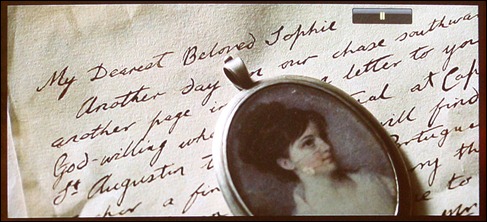 My Dearest Beloved Sophie
Another day in our chase southwar
another page in a letter to you
God-willing whe tal at Cap
St. Augustin t will find
Portugue
her a fin ng the
e to